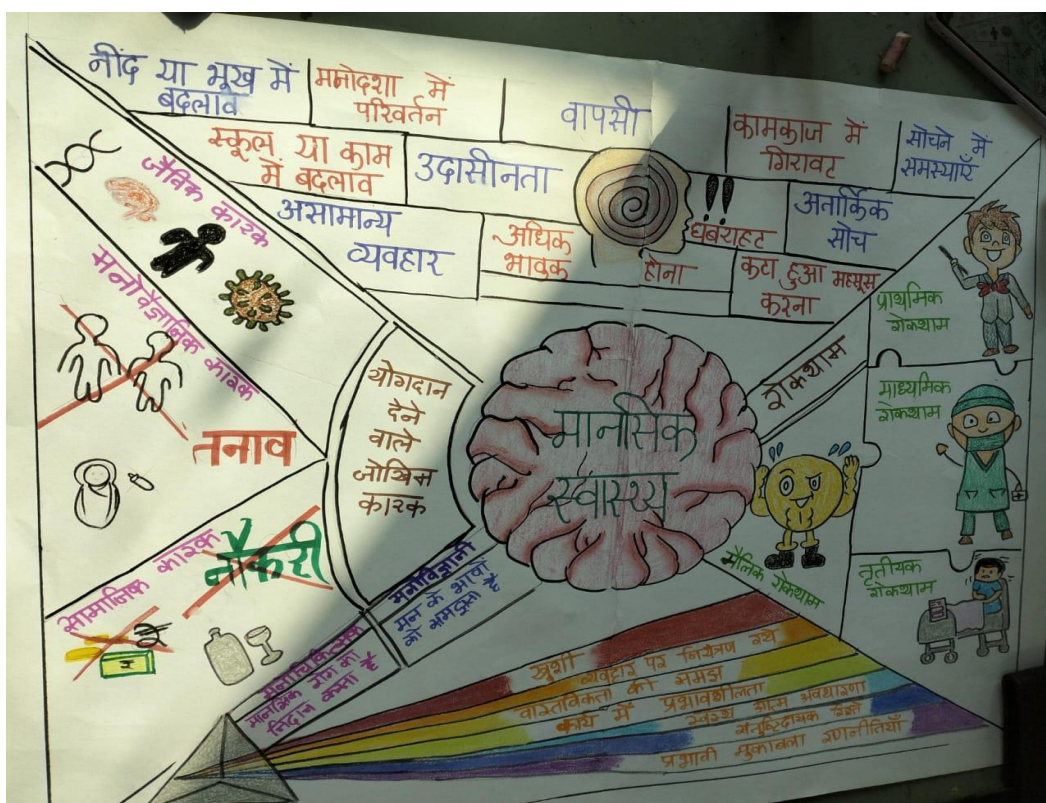 नींद या भूख में
बदलाव
मनोदशा में
परिवर्तन
वापसी
कामकाज में
गिरावट
सोचने में
समस्याएँ
स्कूल या काम
में बदलाव
उदासीनता
घबराहट
अतार्किक
सोच
असामान्य
व्यवहार
अधिक
भावक
होना
कटा हुआ महसूस
करना
जैविक कारक
मनोवैज्ञानिक कारक
तनाव
सामाजिक कारक
नौकरी
योगदान
देने
वाले
जोखिम
कारक
मानसिक
स्वास्थ्य
रोकथाम
प्राथमिक
रोकथाम
माध्यमिक
रोकथाम
तृतीयक
रोकथाम
मौलिक रोकथाम
मनोविज्ञानी
मन के भावों
को समझता है
मनोचिकित्सक
मानसिक रोग का
निदान करता है
खुशी
व्यवहार पर नियंत्रण
वास्तविकता की समझ
कार्य में प्रभावशीलता
स्वस्थ आत्म अवधारणा
संतुष्टिदायक रिश्ते
प्रभावी मुकाबला रणनीतियाँ